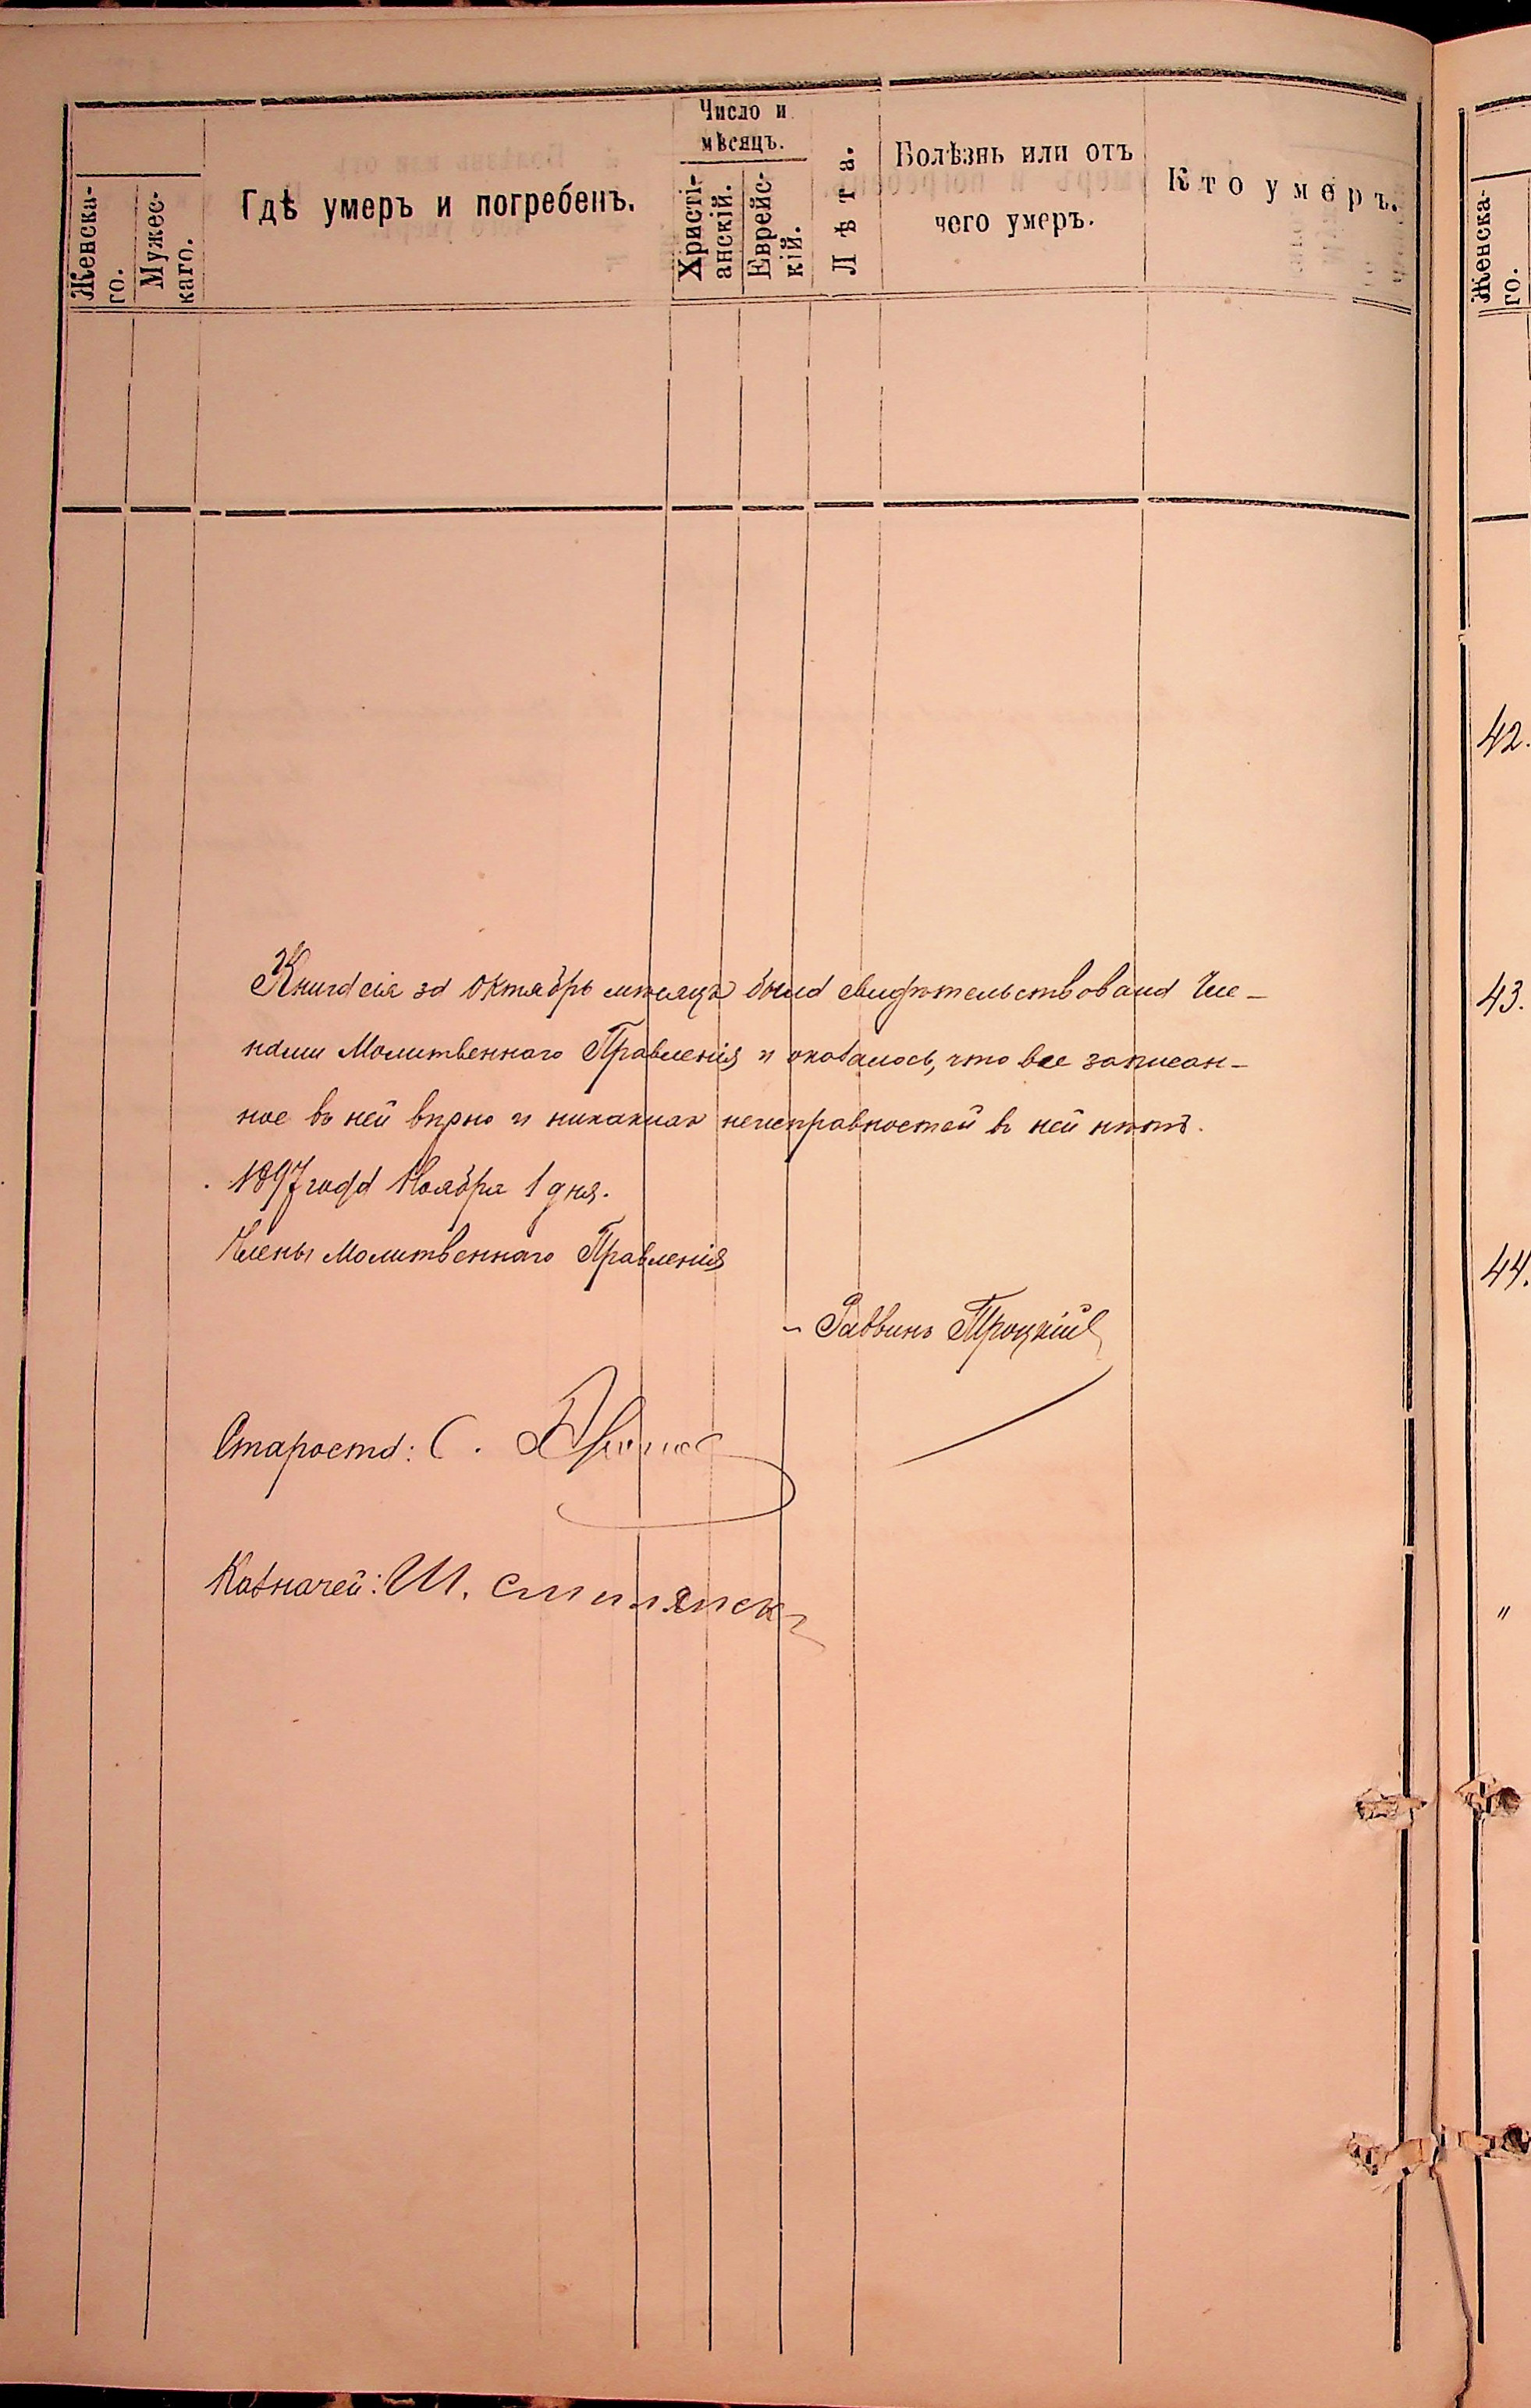 Женска-
го.
Мужес-
каго.
Гдѣ умеръ и погребенъ.
Число и
мѣсяцъ.
Христі-
анскій.
Еврейс-
кій.
Лѣта.
Болѣзнь или отъ
чего умеръ.
Кто умеръ.
Книга сія за Октябрь мѣсяцъ была свидѣтельствована Чле-
нами Молитвеннаго Правленія и оказалось, что все записан-
ное въ ней вѣрно и никакихъ неисправностей въ ней нѣтъ.
1897 года Ноября 1 дня.
Члены Молитвеннаго Правленія
Раввинъ Троцкій
Староста: С.
Казначей: Ш. Смилянск
Женска-
го.
42.
43.
44.
"